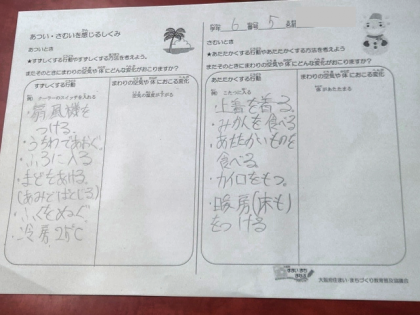 あつい・さむいを感じるしくみ
あついとき
★すずしくする行動やすずしくする方法を考えよう。
またそのときにまわりの空気や体にどんな変化がおこりますか？
すずしくする行動
まわりの空気や体におこる変化
例）クーラーのスイッチを入れる
空気の温度が下がる
扇風機を
つける。
・うちわであおぐ。
・ふろに入る
・まどをあける。
(あみどはとじる)
・ふくをぬぐ
・冷房25℃
学年 6 番号 5 名前
さむいとき
★あたたかくする行動やあたたかくする方法を考えよう。
またそのときにまわりの空気や体にどんな変化がおこりますか？
あたたかくする行動
まわりの空気や体におこる変化
例）こたつに入る
体があたたまる
・上着を着る。
・みかんを食べる
・あたたかいものを
食べる
・カイロをもつ。
・暖房(床も)
をつける